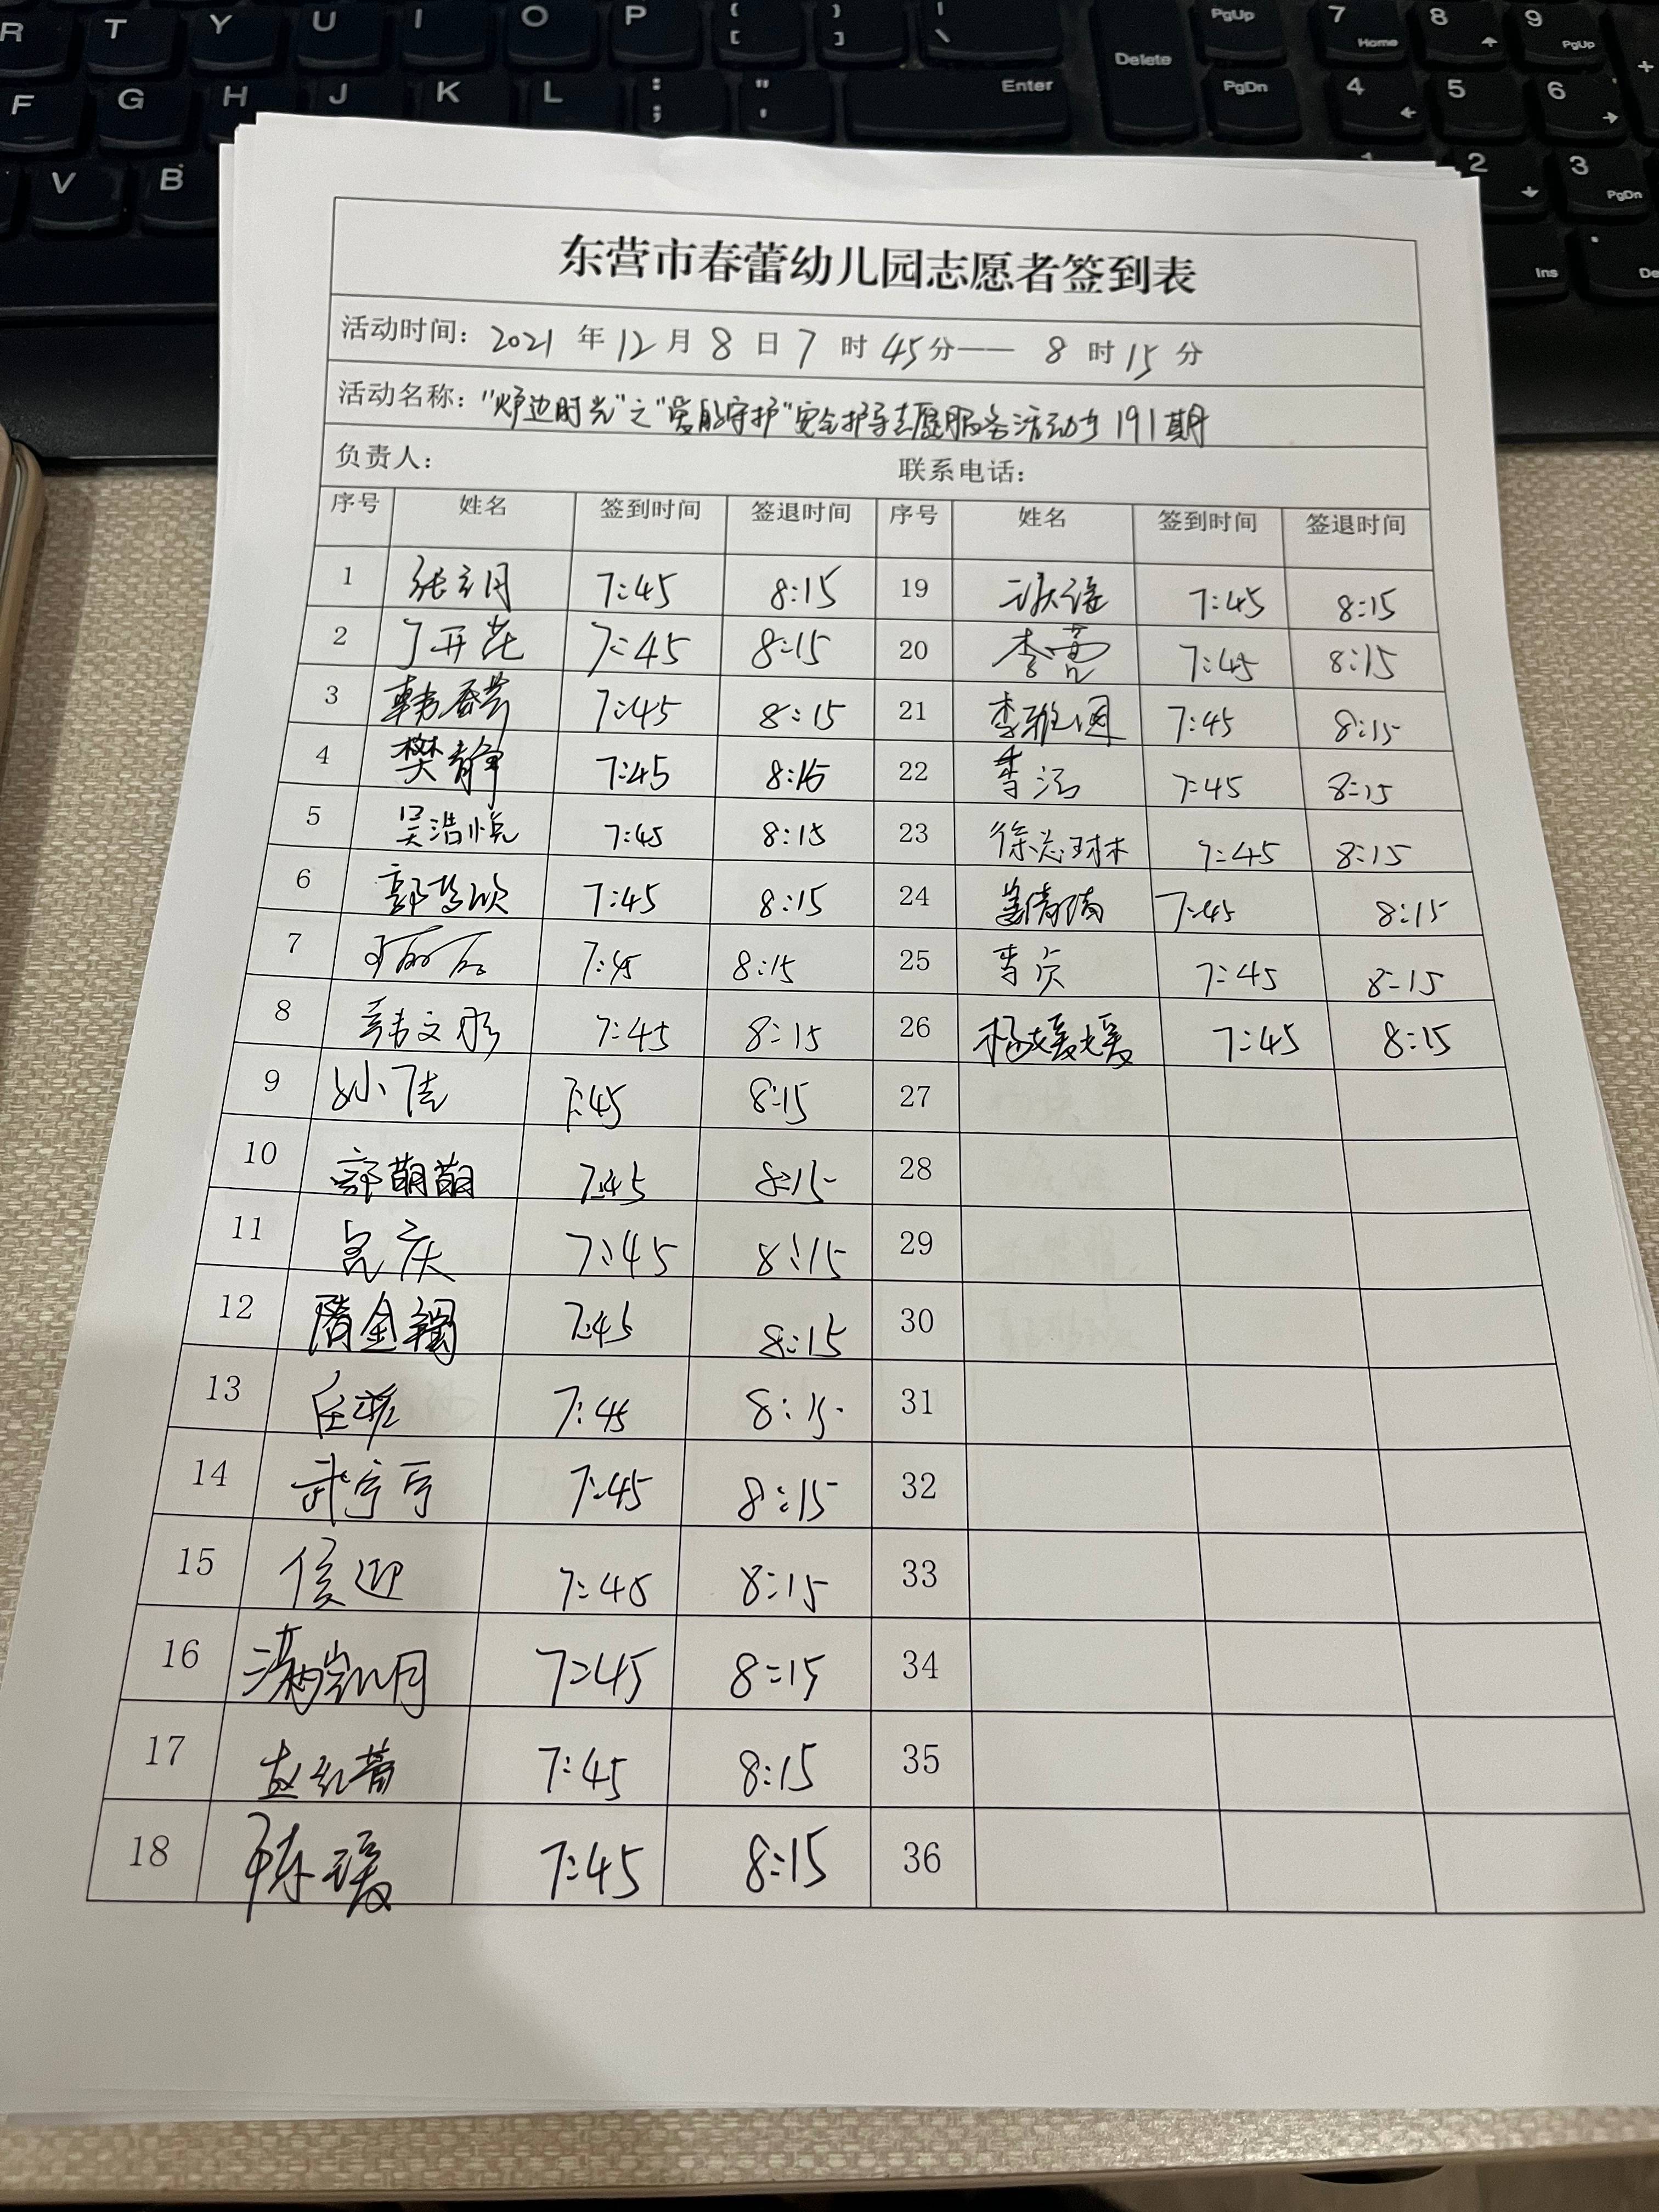 R T Y U I O P { [ } ] | \ Delete PgUp 7 Home 8 9 PgUp +
F G H J K L : ; " ' Enter PgDn 4 5 6
V B 1 2 3 PgDn
Ins
东营市春蕾幼儿园志愿者签到表
活动时间: 2021 年 12 月 8 日 7 时 45 分—— 8 时 15 分
活动名称: "炉边时光"之"爱的守护"安全护导志愿服务活动 191期
负责人: 联系电话:
序号 姓名 签到时间 签退时间 序号 姓名 签到时间 签退时间
1 7:45 8:15 19 7:45 8:15
2 丁开花 7:45 8:15 20 7:45 8:15
3 7:45 8:15 21 7:45 8:15
4 樊静 7:45 8:15 22 李洁 7:45 8:15
5 吴浩悦 7:45 8:15 23 7:45 8:15
6 7:45 8:15 24 姜倩倩 7:45 8:15
7 7:45 8:15 25 李贞 7:45 8:15
8 韩文彤 7:45 8:15 26 杨媛媛 7:45 8:15
9 7:45 8:15 27
10 郭萌萌 7:45 8:15 28
11 7:45 8:15 29
12 7:45 8:15 30
13 7:45 8:15 31
14 7:45 8:15 32
15 侯迎 7:45 8:15 33
16 满凯月 7:45 8:15 34
17 赵红蕾 7:45 8:15 35
18 陈瑗 7:45 8:15 36